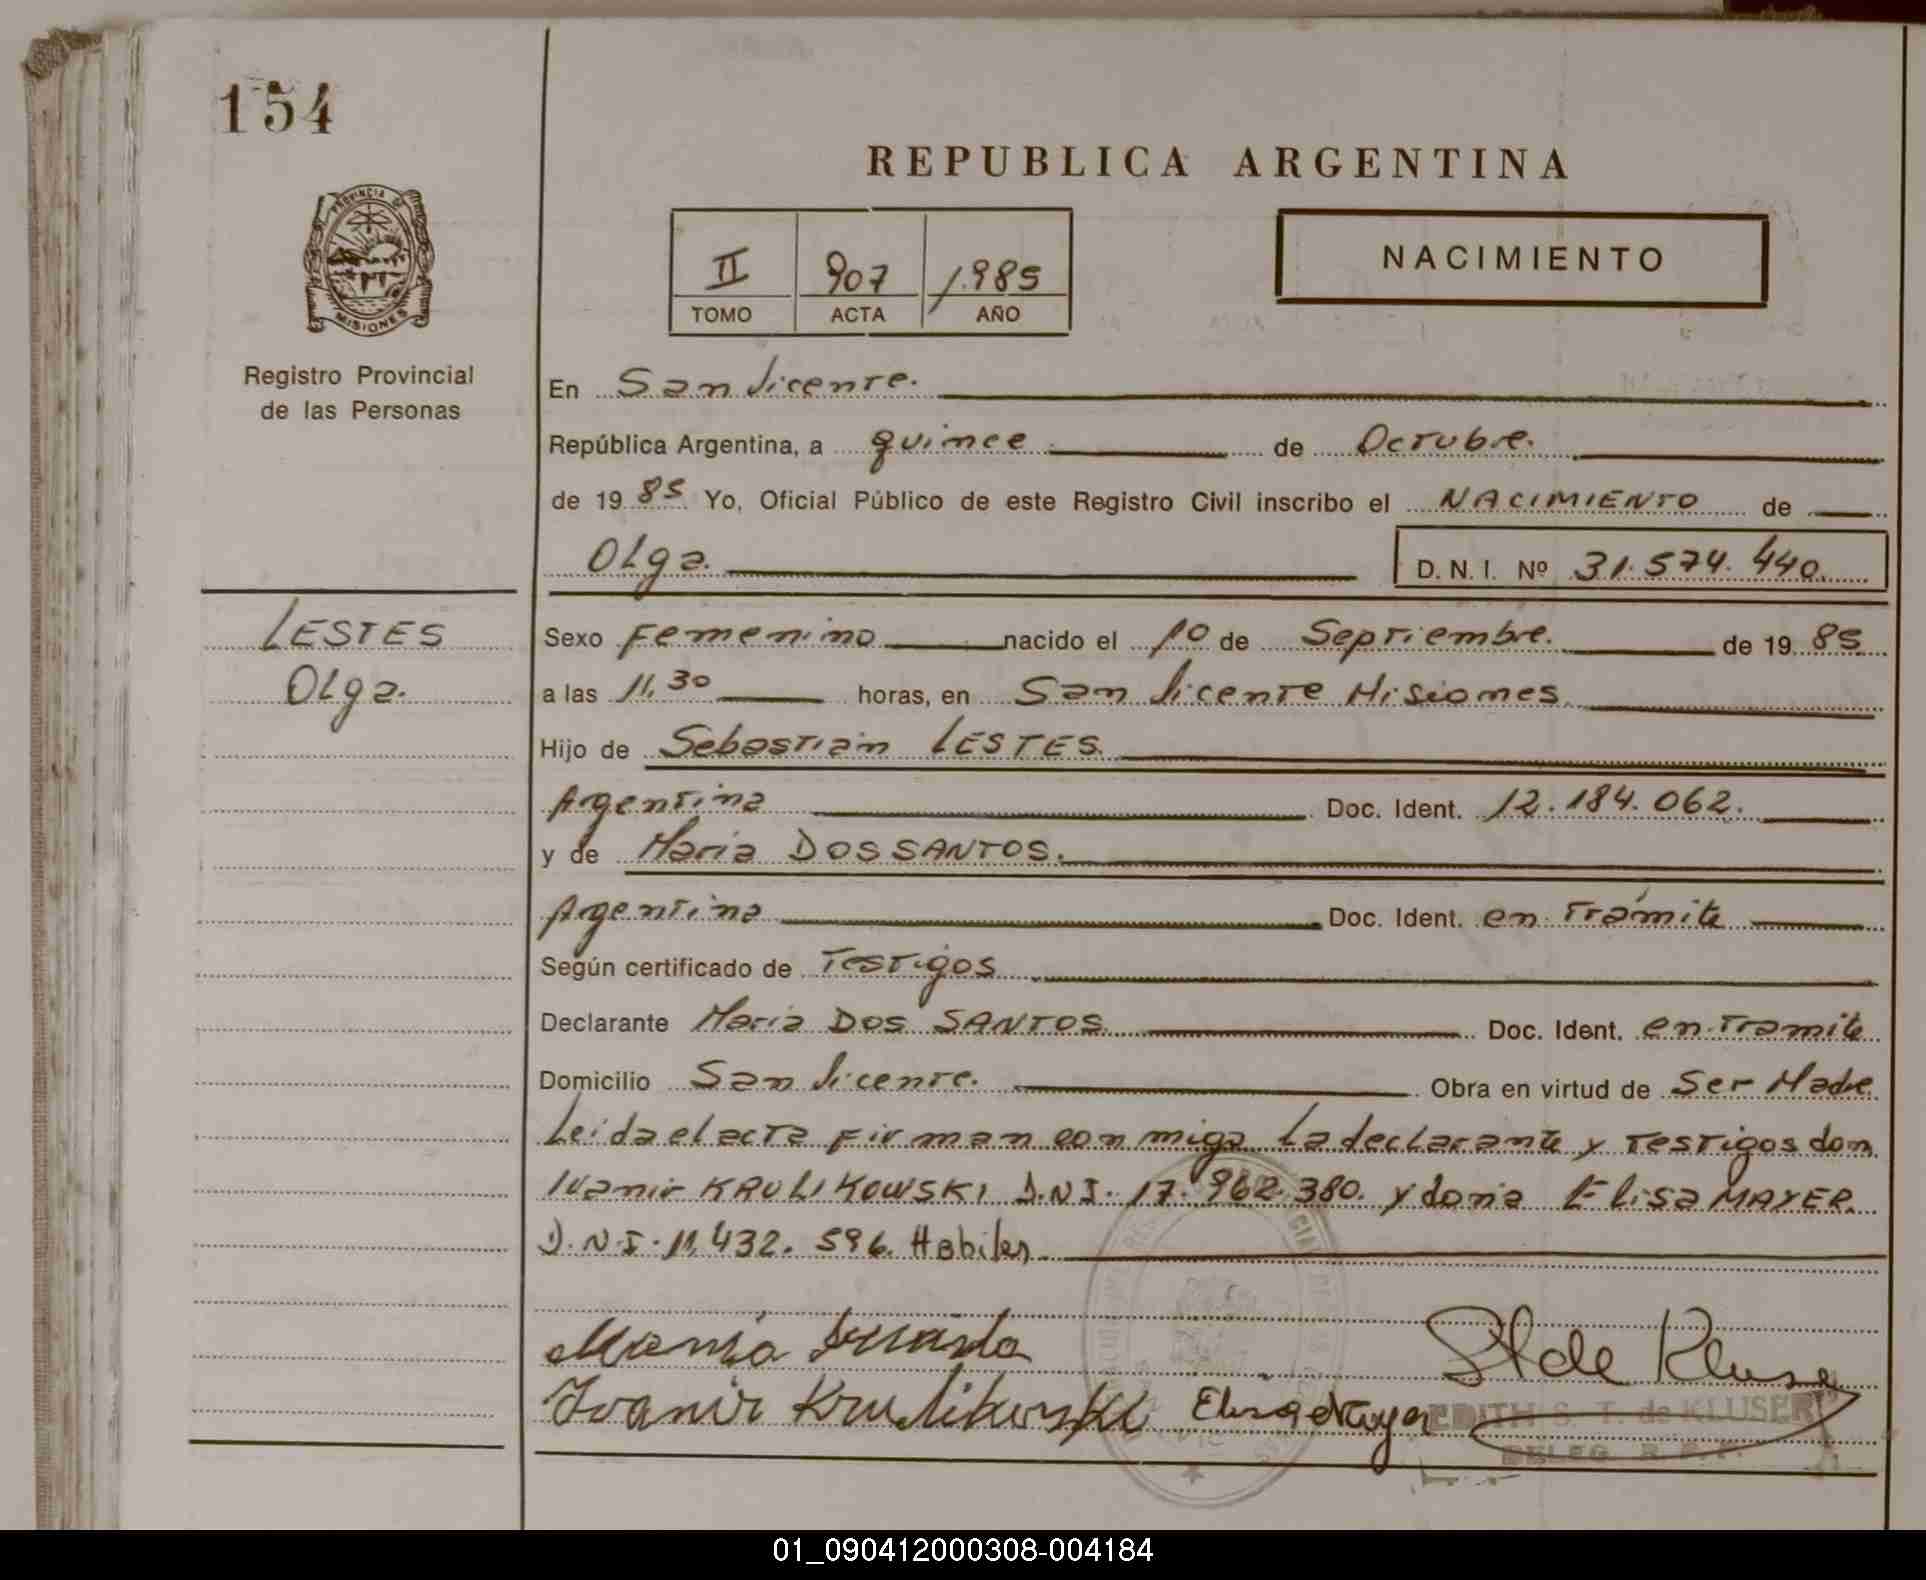 154
REPUBLICA ARGENTINA
PROVINCIA DE MISIONES
II 907 1.985
TOMO ACTA AÑO
NACIMIENTO
Registro Provincial
de las Personas
En San Vicente.
República Argentina, a quince de Octubre.
de 19 85 Yo, Oficial Público de este Registro Civil inscribo el NACIMIENTO de
Olga. D. N. I. Nº 31.574.440.
LESTES
Olga.
Sexo Femenino nacido el 10 de Septiembre. de 19 85
a las 11,30 horas, en San Vicente Misiones.
Hijo de Sebastián LESTES.
Argentina Doc. Ident. 12.184.062.
y de Maria DOS SANTOS.
Argentina Doc. Ident. en Trámite
Según certificado de Testigos
Declarante Maria DOS SANTOS Doc. Ident. en Tramite
Domicilio San Vicente. Obra en virtud de Ser Madre.
Leida el acta firman conmigo La declarante y Testigos don
Ivanir KRULIKOWSKI D.N.I. 17.962.380. y doña Elisa MAYER.
D.N.I. 11,432.596. Habiles
Maria
St de Kluser
Ivanir Krulikowski Elisa Mayer
EDITH S. T. de KLUSER
DELEG. R. P. P.
01_090412000308-004184